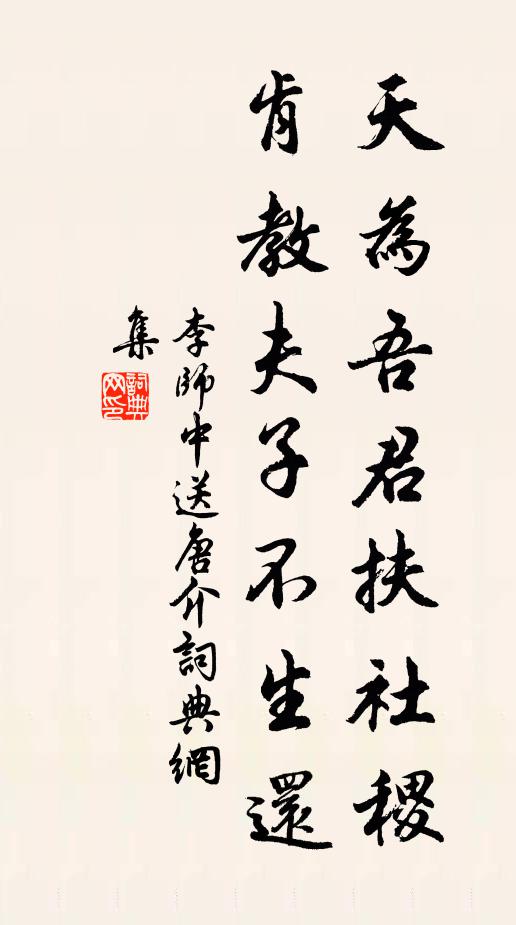 天為吾君扶社稷
肯教夫子不生還
李師中送唐介詞典網
集
詞典網印